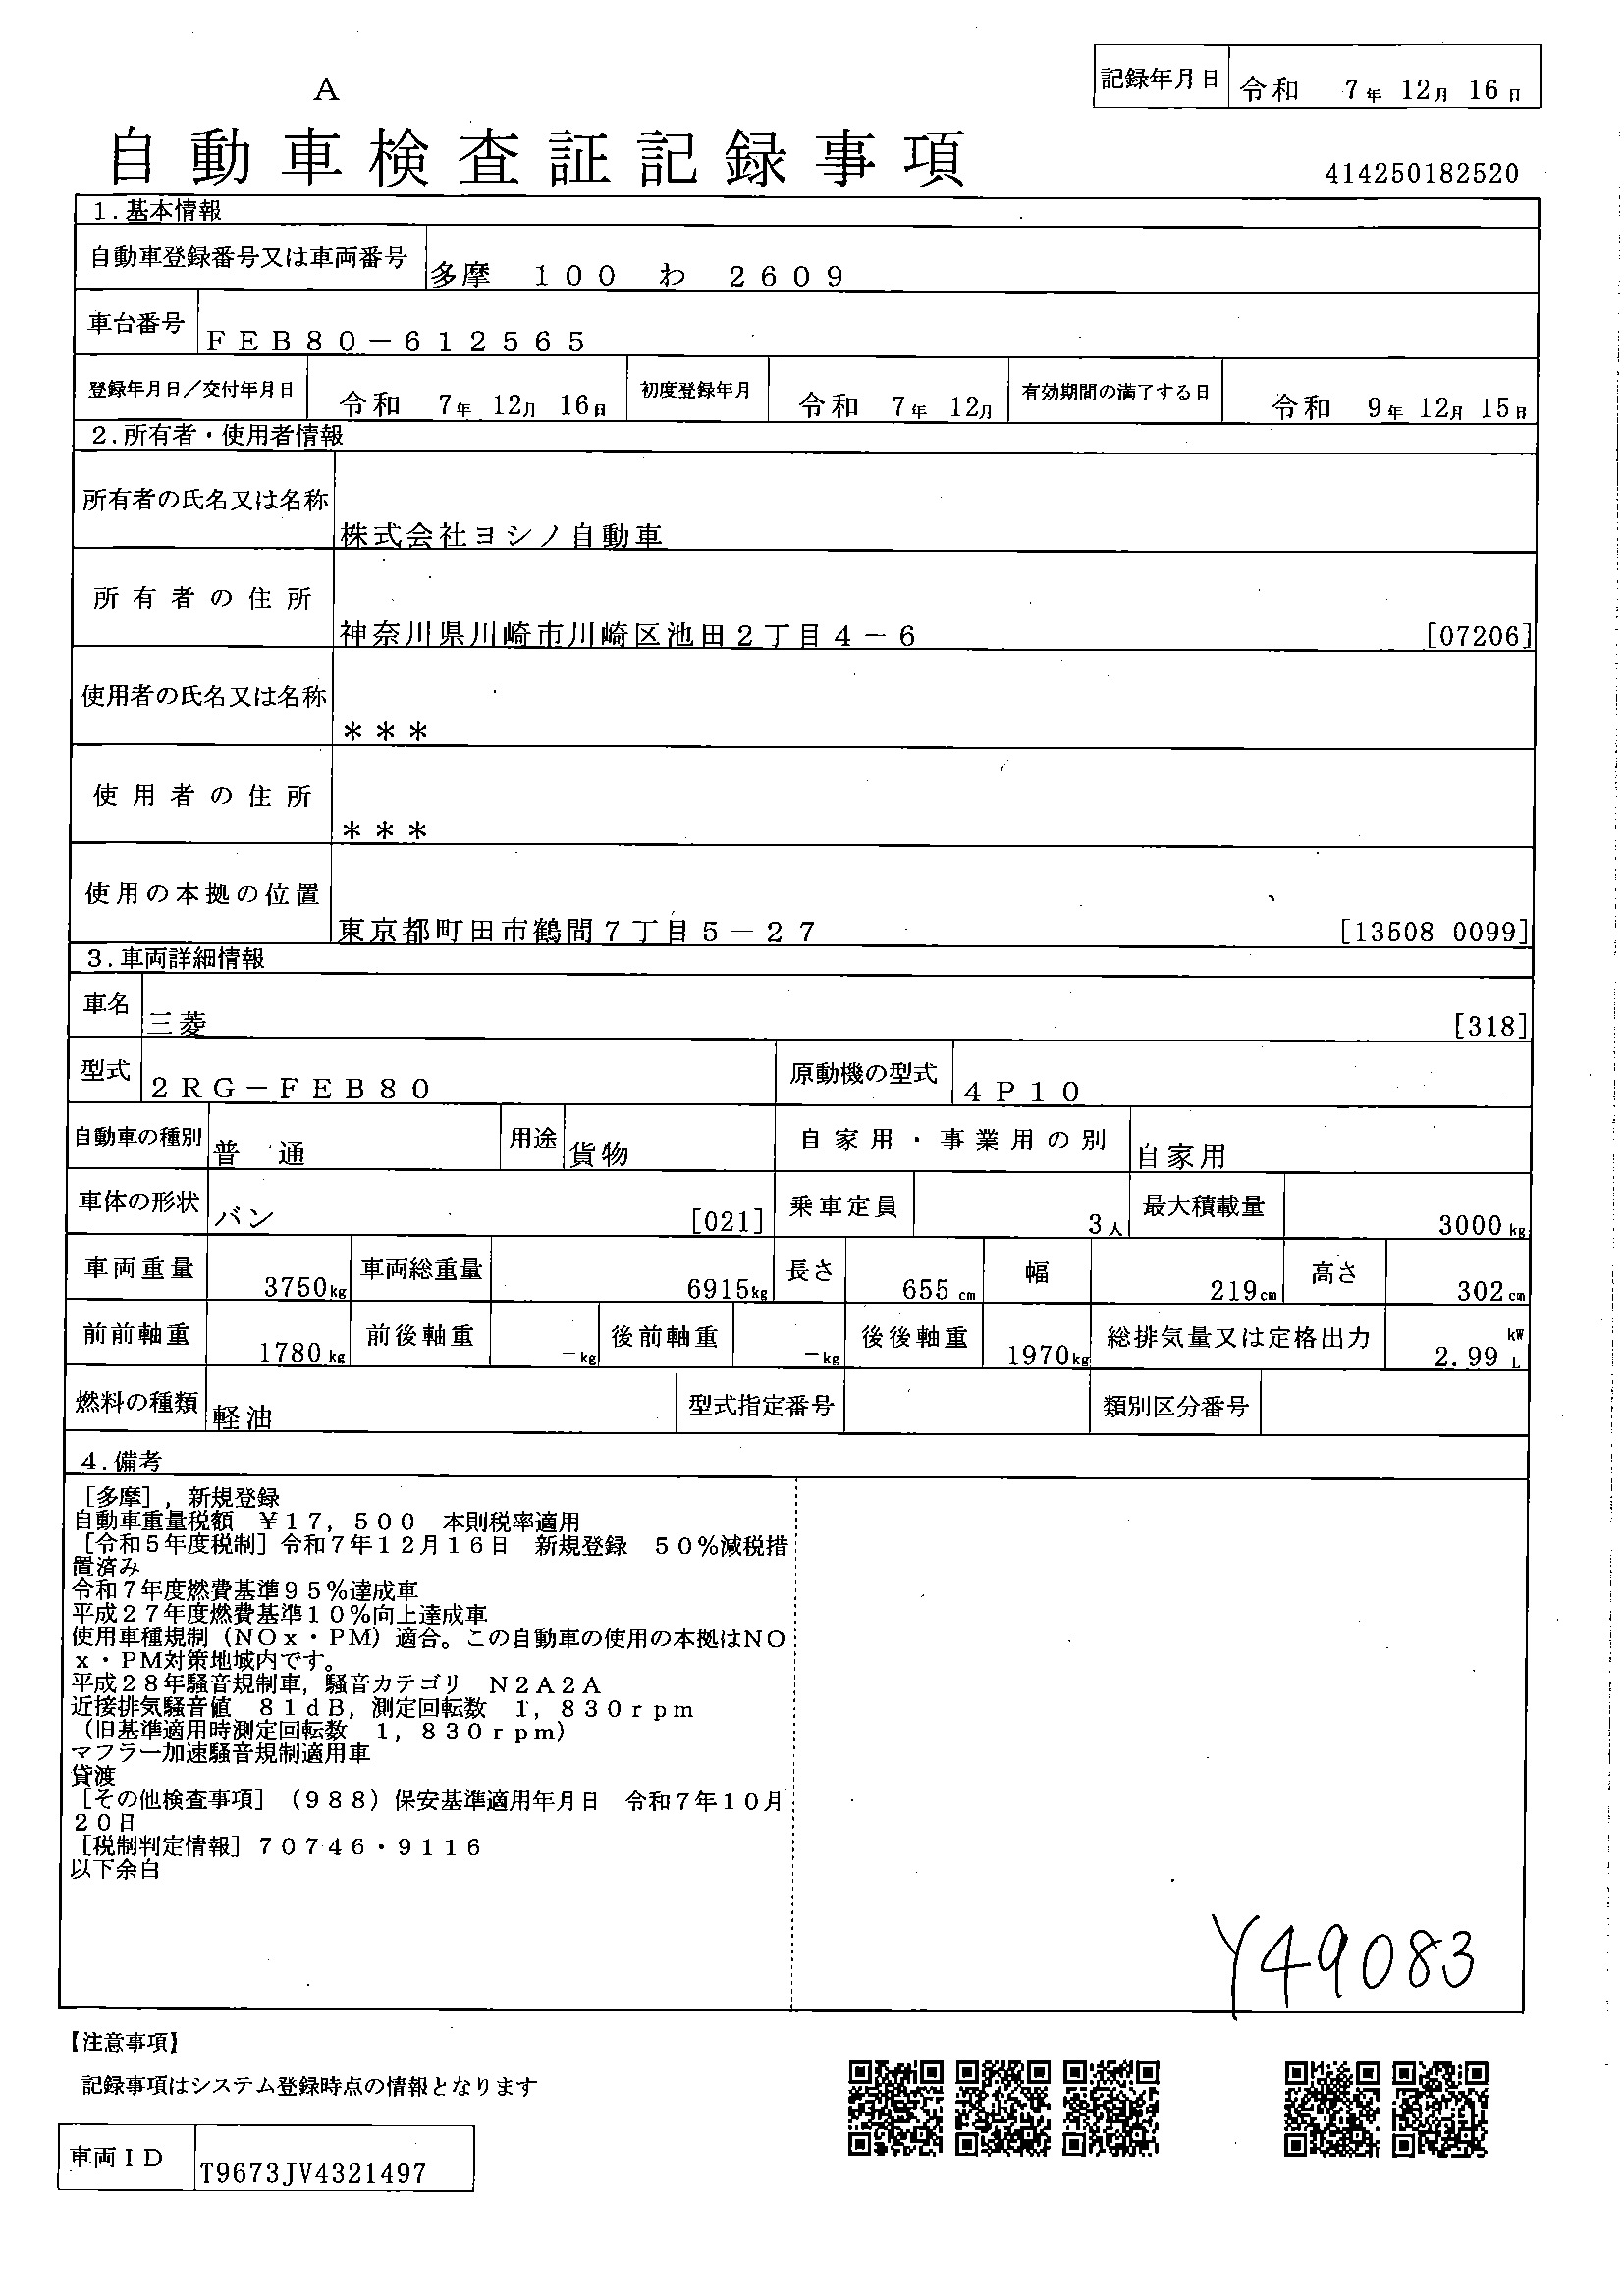 記録年月日 令和 7年 12月 16日
A
自動車検査証記録事項
414250182520
1.基本情報
自動車登録番号又は車両番号 多摩 １００ わ ２６０９
車台番号 ＦＥＢ８０－６１２５６５
登録年月日／交付年月日 令和 7年 12月 16日 初度登録年月 令和 7年 12月 有効期間の満了する日 令和 9年 12月 15日
2.所有者・使用者情報
所有者の氏名又は名称 株式会社ヨシノ自動車
所有者の住所 神奈川県川崎市川崎区池田２丁目４－６ [07206]
使用者の氏名又は名称 ＊＊＊
使用者の住所 ＊＊＊
使用の本拠の位置 東京都町田市鶴間７丁目５－２７ [13508 0099]
3.車両詳細情報
車名 三菱 [318]
型式 ２ＲＧ－ＦＥＢ８０ 原動機の型式 ４Ｐ１０
自動車の種別 普 通 用途 貨物 自家用・事業用の別 自家用
車体の形状 バン [021] 乗車定員 3人 最大積載量 3000kg
車両重量 3750kg 車両総重量 6915kg 長さ 655cm 幅 219cm 高さ 302cm
前前軸重 1780kg 前後軸重 －kg 後前軸重 －kg 後後軸重 1970kg 総排気量又は定格出力 2.99 kW L
燃料の種類 軽油 型式指定番号 類別区分番号
4.備考
［多摩］，新規登録
自動車重量税額 ￥１７，５００ 本則税率適用
［令和５年度税制］令和７年１２月１６日 新規登録 ５０％減税措
置済み
令和７年度燃費基準９５％達成車
平成２７年度燃費基準１０％向上達成車
使用車種規制（ＮＯｘ・ＰＭ）適合。この自動車の使用の本拠はＮＯ
ｘ・ＰＭ対策地域内です。
平成２８年騒音規制車，騒音カテゴリ Ｎ２Ａ２Ａ
近接排気騒音値 ８１ｄＢ，測定回転数 １，８３０ｒｐｍ
（旧基準適用時測定回転数 １，８３０ｒｐｍ）
マフラー加速騒音規制適用車
貸渡
［その他検査事項］（９８８）保安基準適用年月日 令和７年１０月
２０日
［税制判定情報］７０７４６・９１１６
以下余白
Y49083
【注意事項】
記録事項はシステム登録時点の情報となります
車両ＩＤ T9673JV4321497